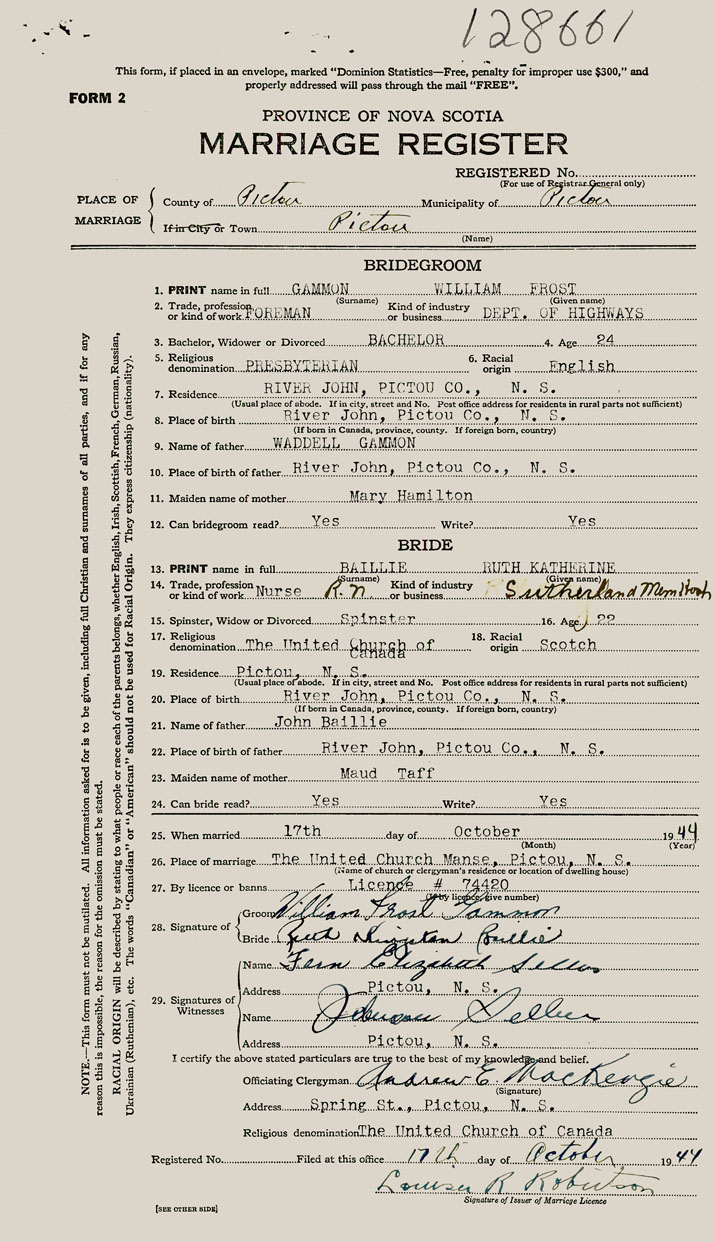 128661
This form, if placed in an envelope, marked "Dominion Statistics—Free, penalty for improper use $300," and
properly addressed will pass through the mail "FREE".
FORM 2
PROVINCE OF NOVA SCOTIA
MARRIAGE REGISTER
REGISTERED No.
(For use of Registrar General only)
PLACE OF MARRIAGE
County of Pictou Municipality of Pictou
If in City or Town Pictou
(Name)
BRIDEGROOM
1. PRINT name in full GAMMON WILLIAM FROST
(Surname) (Given name)
2. Trade, profession or kind of work FOREMAN Kind of industry or business DEPT. OF HIGHWAYS
3. Bachelor, Widower or Divorced BACHELOR 4. Age 24
5. Religious denomination PRESBYTERIAN 6. Racial origin English
7. Residence RIVER JOHN, PICTOU CO., N. S.
(Usual place of abode. If in city, street and No. Post office address for residents in rural parts not sufficient)
8. Place of birth River John, Pictou Co., N. S.
(If born in Canada, province, county. If foreign born, country)
9. Name of father WADDELL GAMMON
10. Place of birth of father River John, Pictou Co., N. S.
11. Maiden name of mother Mary Hamilton
12. Can bridegroom read? Yes Write? Yes
BRIDE
13. PRINT name in full BAILLIE RUTH KATHERINE
(Surname) (Given name)
14. Trade, profession or kind of work Nurse R.N. Kind of industry or business Sutherland Mem Hosp
15. Spinster, Widow or Divorced Spinster 16. Age 22
17. Religious denomination The United Church of Canada 18. Racial origin Scotch
19. Residence Pictou, N. S.
(Usual place of abode. If in city, street and No. Post office address for residents in rural parts not sufficient)
20. Place of birth River John, Pictou Co., N. S.
(If born in Canada, province, county. If foreign born, country)
21. Name of father John Baillie
22. Place of birth of father River John, Pictou Co., N. S.
23. Maiden name of mother Maud Taff
24. Can bride read? Yes Write? Yes
25. When married 17th day of October 1944
(Month) (Year)
26. Place of marriage The United Church Manse, Pictou, N. S.
(Name of church or clergyman's residence or location of dwelling house)
27. By licence or banns Licence # 74420
(If by licence, give number)
28. Signature of
Groom William Frost Gammon
Bride Ruth Baillie
29. Signatures of Witnesses
Name Fern Elizabeth Sellers
Address Pictou, N. S.
Name
Address Pictou, N. S.
I certify the above stated particulars are true to the best of my knowledge and belief.
Officiating Clergyman Andrew E. MacKenzie
(Signature)
Address Spring St., Pictou, N. S.
Religious denomination The United Church of Canada
Registered No. Filed at this office 17th day of October 1944
Louisa R Robertson
Signature of Issuer of Marriage Licence
[SEE OTHER SIDE]
NOTE.—This form must not be mutilated. All information asked for is to be given, including full Christian and surnames of all parties, and if for any
reason this is impossible, the reason for the omission must be stated.
RACIAL ORIGIN will be described by stating to what people or race each of the parents belongs, whether English, Irish, Scottish, French, German, Russian,
Ukrainian (Ruthenian), etc. The words "Canadian" or "American" should not be used for Racial Origin. They express citizenship (nationality).